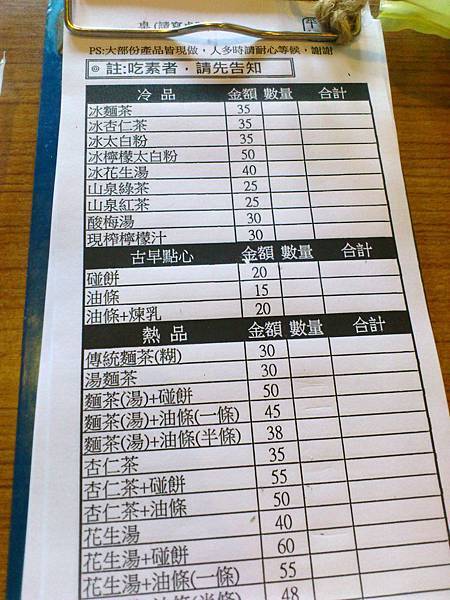 PS:大部份產品皆現做，人多時請耐心等候，謝謝
◎ 註:吃素者，請先告知
冷 品 金額 數量 合計
冰麵茶 35
冰杏仁茶 35
冰太白粉 35
冰檸檬太白粉 50
冰花生湯 40
山泉綠茶 25
山泉紅茶 25
酸梅湯 30
現榨檸檬汁 30
古早點心 金額 數量 合計
碰餅 20
油條 15
油條+煉乳 20
熱 品 金額 數量 合計
傳統麵茶(糊) 30
湯麵茶 30
麵茶(湯)+碰餅 50
麵茶(湯)+油條(一條) 45
麵茶(湯)+油條(半條) 38
杏仁茶 35
杏仁茶+碰餅 55
杏仁茶+油條 50
花生湯 40
花生湯+碰餅 60
花生湯+油條(一條) 55
花生湯+油條(半條) 48